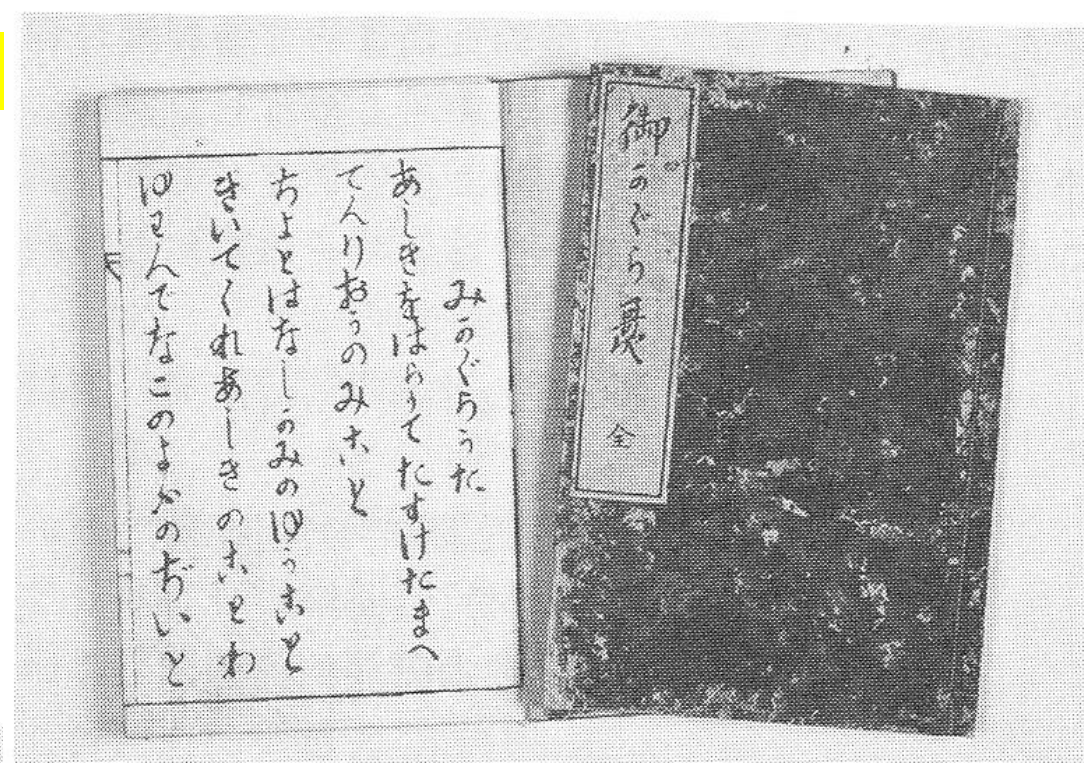 御かぐら 全
みかぐらうた
あしきをはらうてたすけたまへ
てんりおうのみこと
ちよとはなしかみのゆうこと
きいてくれあしきのことわ
ゆわんでなこのよのぢいと